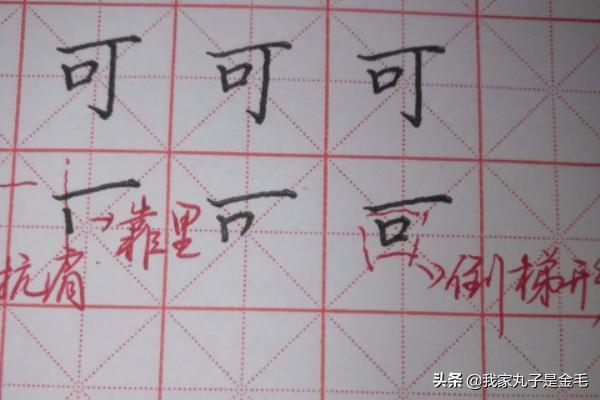 可 可 可
靠里
抗肩 倒梯形
头条 @我家丸子是金毛